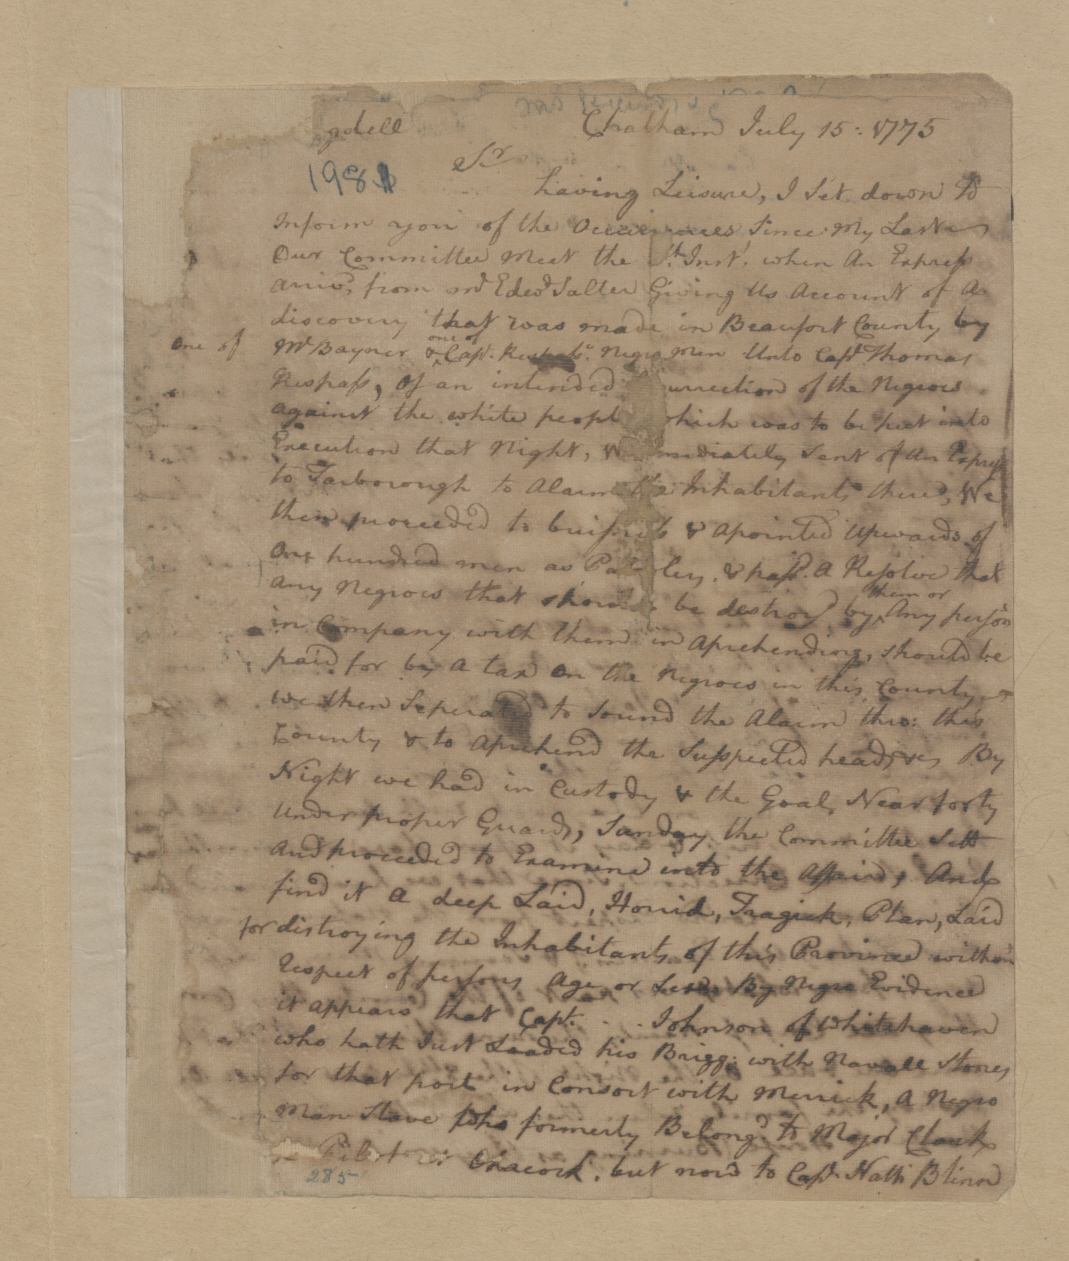 Chatham July 15: 1775
gdell
Sr
1981
having Leisure, I Set down to
Inform you of the Occurrences Since My Last
Our Committee Meet the Inst. when An Express
arivd. from mr Edwd Salter Giving Us Account of A
discovery that was made in Beaufort County by
one of Mr Bayner & one of Capt. Respess. Negro Men Unto Capt Thomas
Respass, Of an intended urrection of the Negroes
against the white peopl which was to be put into
Execution that Night, W mmediately Sent of An Express
to Tarborough to Alarm the Inhabitants there, We
then proceeded to buisness & apointed Upwards of
One hundred men as Patroley. & pass. A Resolve that
Any Negroes that should be destroyd by them or Any person
in Company with them in Aprehending, should be
paid for by A tax on the Negroes in this County
we then Seperated to Sound the Alarm thro: this
County & to Aprehend the Suspected heads By
Night we had in Custody & the Goal, Near forty
Under proper Guards, Sunday the Committee Sett
And proceeded to Examine into the Affair, And
find it A deep Laid, Horrid, Tragick, Plan, Laid
for distroying the Inhabitants of this Province without
respect of persons Age or Sex By Negro Evidence
it appears that Capt. . . Johnson of Whitehaven
who hath Just Loaded his Brigg: with Navall Stores
for that port in Consort with Merrick, A Negro
Man Slave who formerly Belongd. to Major Clark
Pilot Ocacock, but now to Capt. Nath Blinn
285